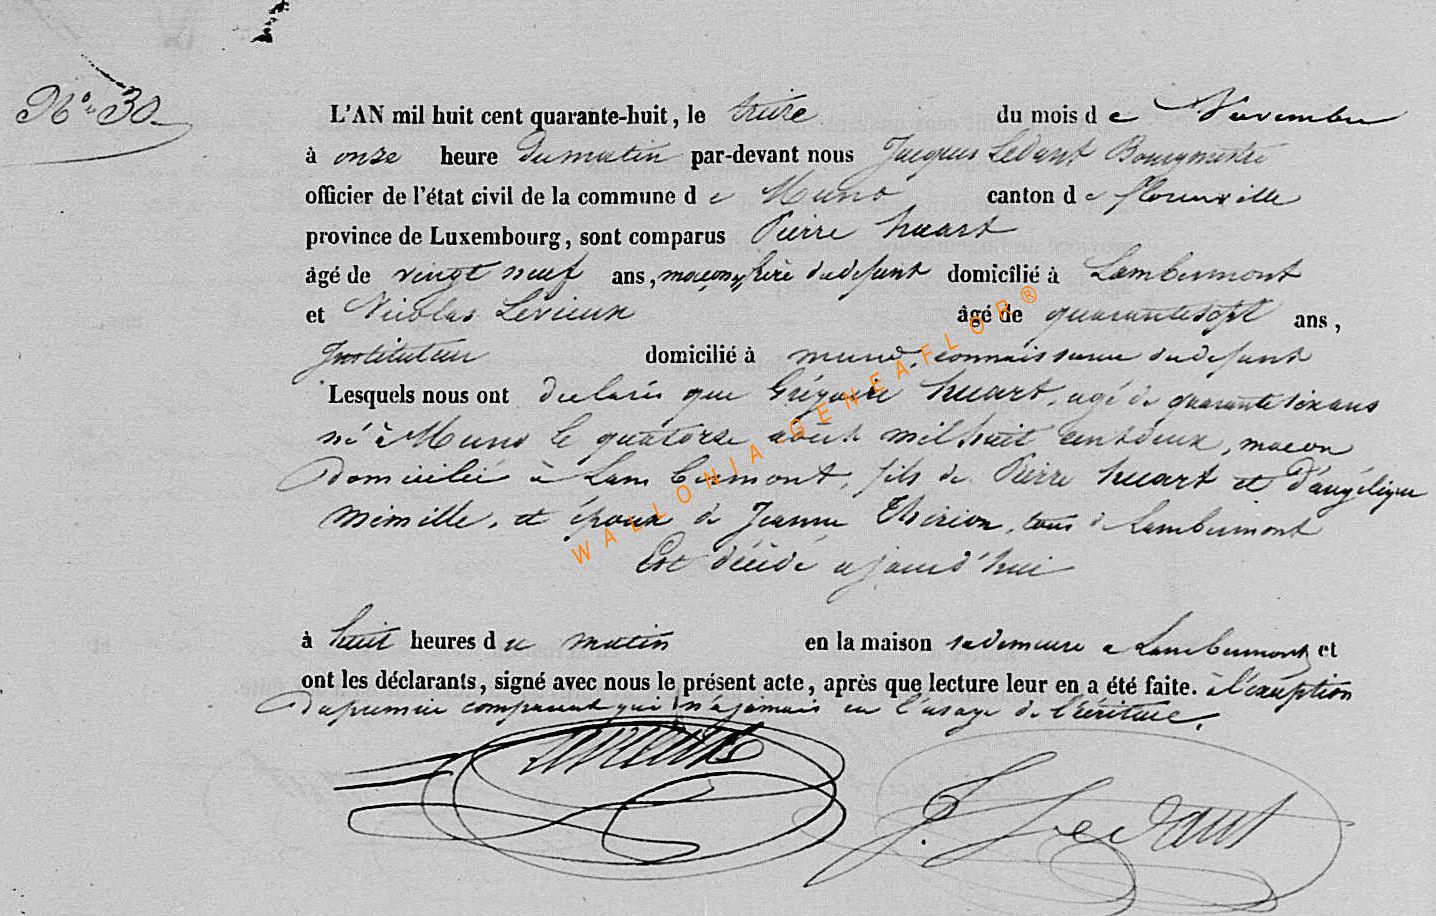 N° 30
L'AN mil huit cent quarante-huit, le treize du mois de Novembre
à onze heure du matin par-devant nous Jacques Ledant Bourgmestre
officier de l'état civil de la commune de Muno canton de florenville
province de Luxembourg, sont comparus Pierre huart
âgé de vingt neuf ans, maçon, frère du defunt domicilié à Lambermont
et Nicolas Levieux âgé de quarantesept ans,
Instituteur domicilié à muno, connaissance du defunt
Lesquels nous ont declarés que Grégoire huart, agé de quarante six ans
né à Muno le quatorze août mil huit cent deux, macon
Domicilié à Lambermont, fils de Pierre huart et d'angélique
, et époux de Jeanne Thirion, tous de Lambermont
Est décédé ajourd'hui
à huit heures du matin en la maison sa demeure a Lambermont et
ont les déclarants, signé avec nous le présent acte, après que lecture leur en a été faite. à l'exception
Du premier comparant qui n'a jamais eu l'usage de l'écriture.
Levieux
J. Ledant
WALLONIA-GENEAFLOR®